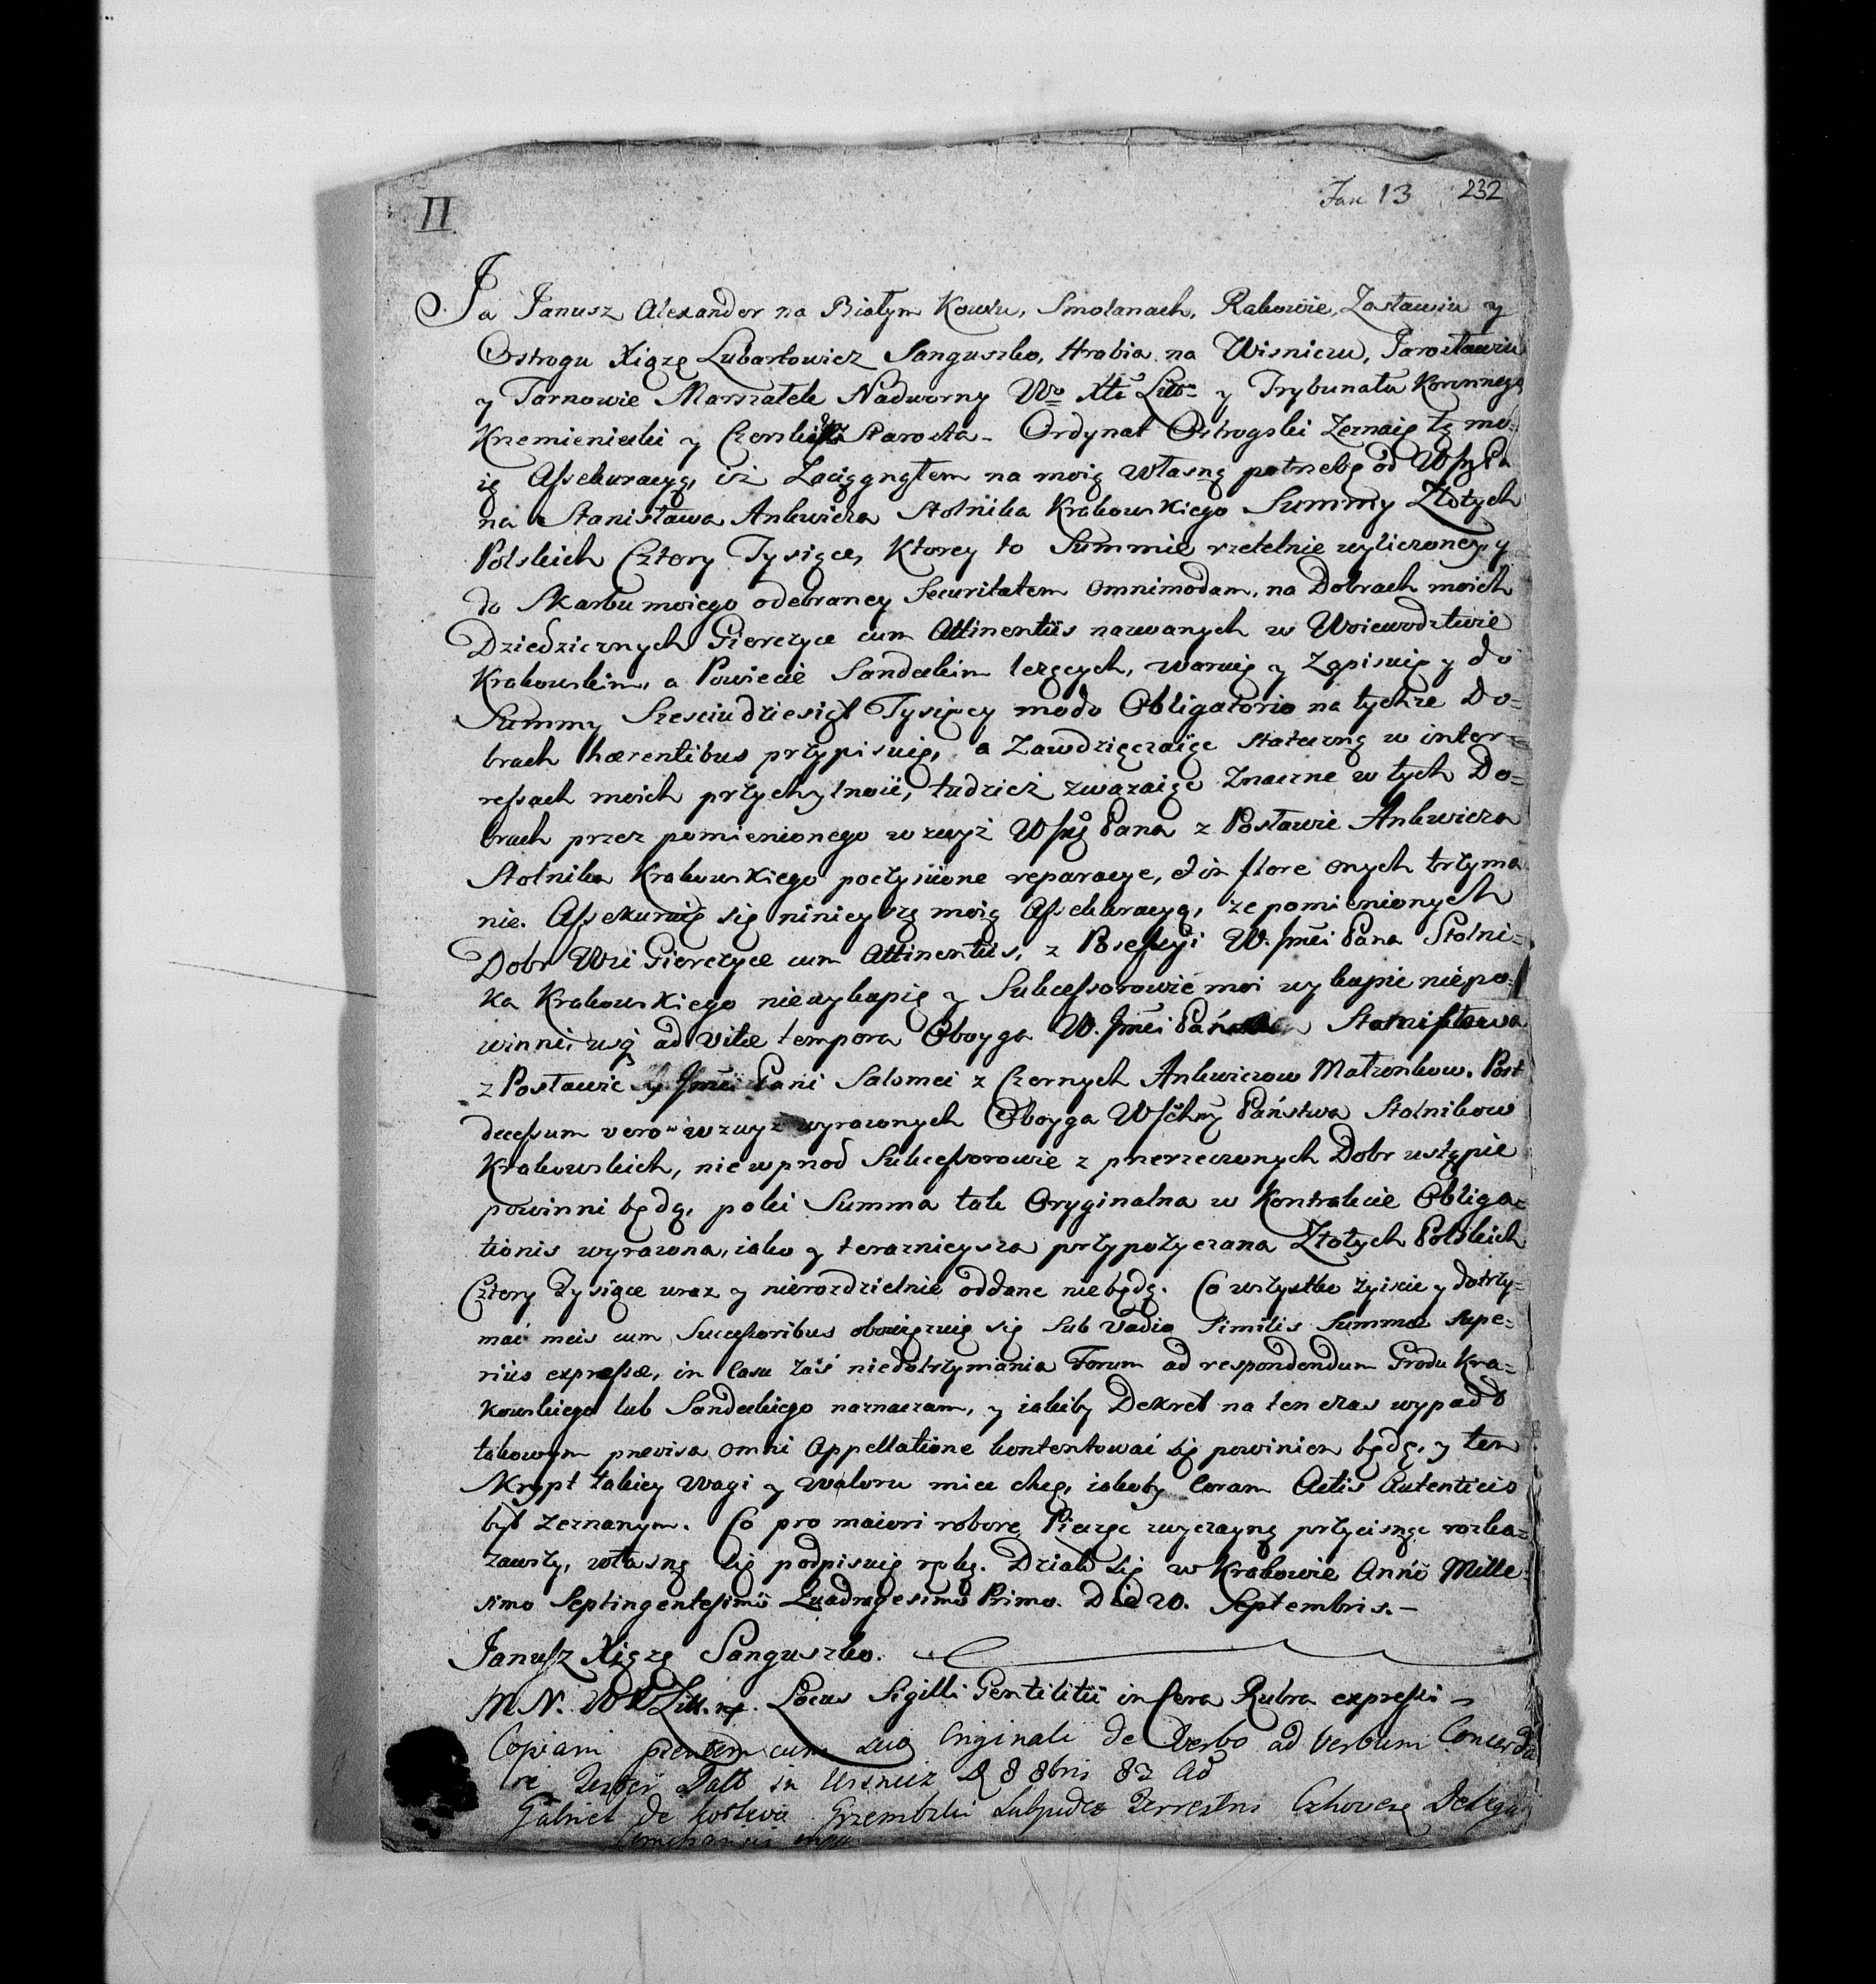 II
Jan 13 232
Ja Janusz Alexander na Białym Kowlu, Smolanach, Rakowie, Zasławiu y
Ostrogu Xiąze Lubartowicz Sanguszko, Hrabia na Wisniczu, Jarosławiu
y Tarnowie Marszałek Nadworny Wo Xa Litt y Trybunału Koronnego
Krzemieniecki y Czerski Starosta - Ordynat Ostrogski Zeznaię tę mo=
ię Assekuracyą, iż Zaciągnąłem na moię własną potrzebę od W Pa
na Stanisława Ankwicza Stolnika Krakowskiego Summy Złotych
Polskich Cztery Tysiące, Ktorey to Summie rzetelnie wyliczoney y
do Skarbu moiego odebraney Securitatem omnimodam, na Dobrach moich
Dziedzicznych Gierczyce cum Attinentiis nazwanych w Woiewodztwie
Krakowskim, a Powiecie Sandeckim leżących, waruię y Zapisuię y do
Summy Szesciudziesiąt Tysięcy modo Obligatorio na tychże Do=
brach hærentibus przypisuię, a Zawdzięczaiąc stateczną w inter=
ressach moich przychylność, tudzież zwazaiąc Znaczne w tych Do=
brach przez pomienionego wzwyż W Pana z Posławic Ankwicza
Stolnika Krakowskiego poczynione reparacye, et in flore onych trzyma
nie. Assekuruię się ninieyszą moią Assekuracyą, że pomienionych
Dobr Wsi Gierczyce cum Attinentiis, z Possessyi W. Jmci Pana Stolni=
ka Krakowskiego niewykupię y Sukcessorowie moi wykupic niepo=
winni, usq ad vitæ tempora Oboyga W. Jmci Stanisława
z Posławic y Jmci Pani Salomei z Czernych Ankwiczow Małżonkow. Post
decessum vero wzwyz wyrazonych Oboyga W Państwa Stolnikow
Krakowskich, nie wprzod Sukcessorowie z przerzeczonych Dobr ustąpic
powinni będą, poki Summa tak Oryginalna w Kontrakcie Obliga=
tionis wyrazona, iako y terazniejsza przypożyczana Złotych Polskich
Cztery Tysiące wraz y nierozdzielnie oddane niebędą. Co wszystko ziscic y dotrzy=
mać meis cum Successoribus obowięzuię się Sub Vadio Similis Summæ Supe=
rius expressæ, in Casu zaś niedotrzymania Forum ad respondendum Grodu Kra=
kowskiego lub Sandeckiego naznaczam, y iakiby Dekret na ten czas wypadł
takowym præcisa omni Appellatione kontentować się powinien będę, y ten
Skrypt takiey wagi y waloru miec chcę, iakoby Coram Actis Autenticis
był zeznanym. Co pro maiori robore Pieczęc zwyczayną przycisnąc rozka=
zawszy, własną się podpisuię ręką. Działo się w Krakowie Anno Mille=
simo Septingentesimo Quadragesimo Primo. Die 20. Septembris.-
Janusz Xiąże Sanguszko.
M N. W X Litt. mp. Locus Sigilli Gentilitii in Cera Rubra expressi -
Copiam præsentem cum suo Originali de Verbo ad Verbum Concorda
re Datt in Wisnicz D 8 8bris 83 Ao
Gabriel de Grzembski Subjudex Terrestris Czchovien Delega